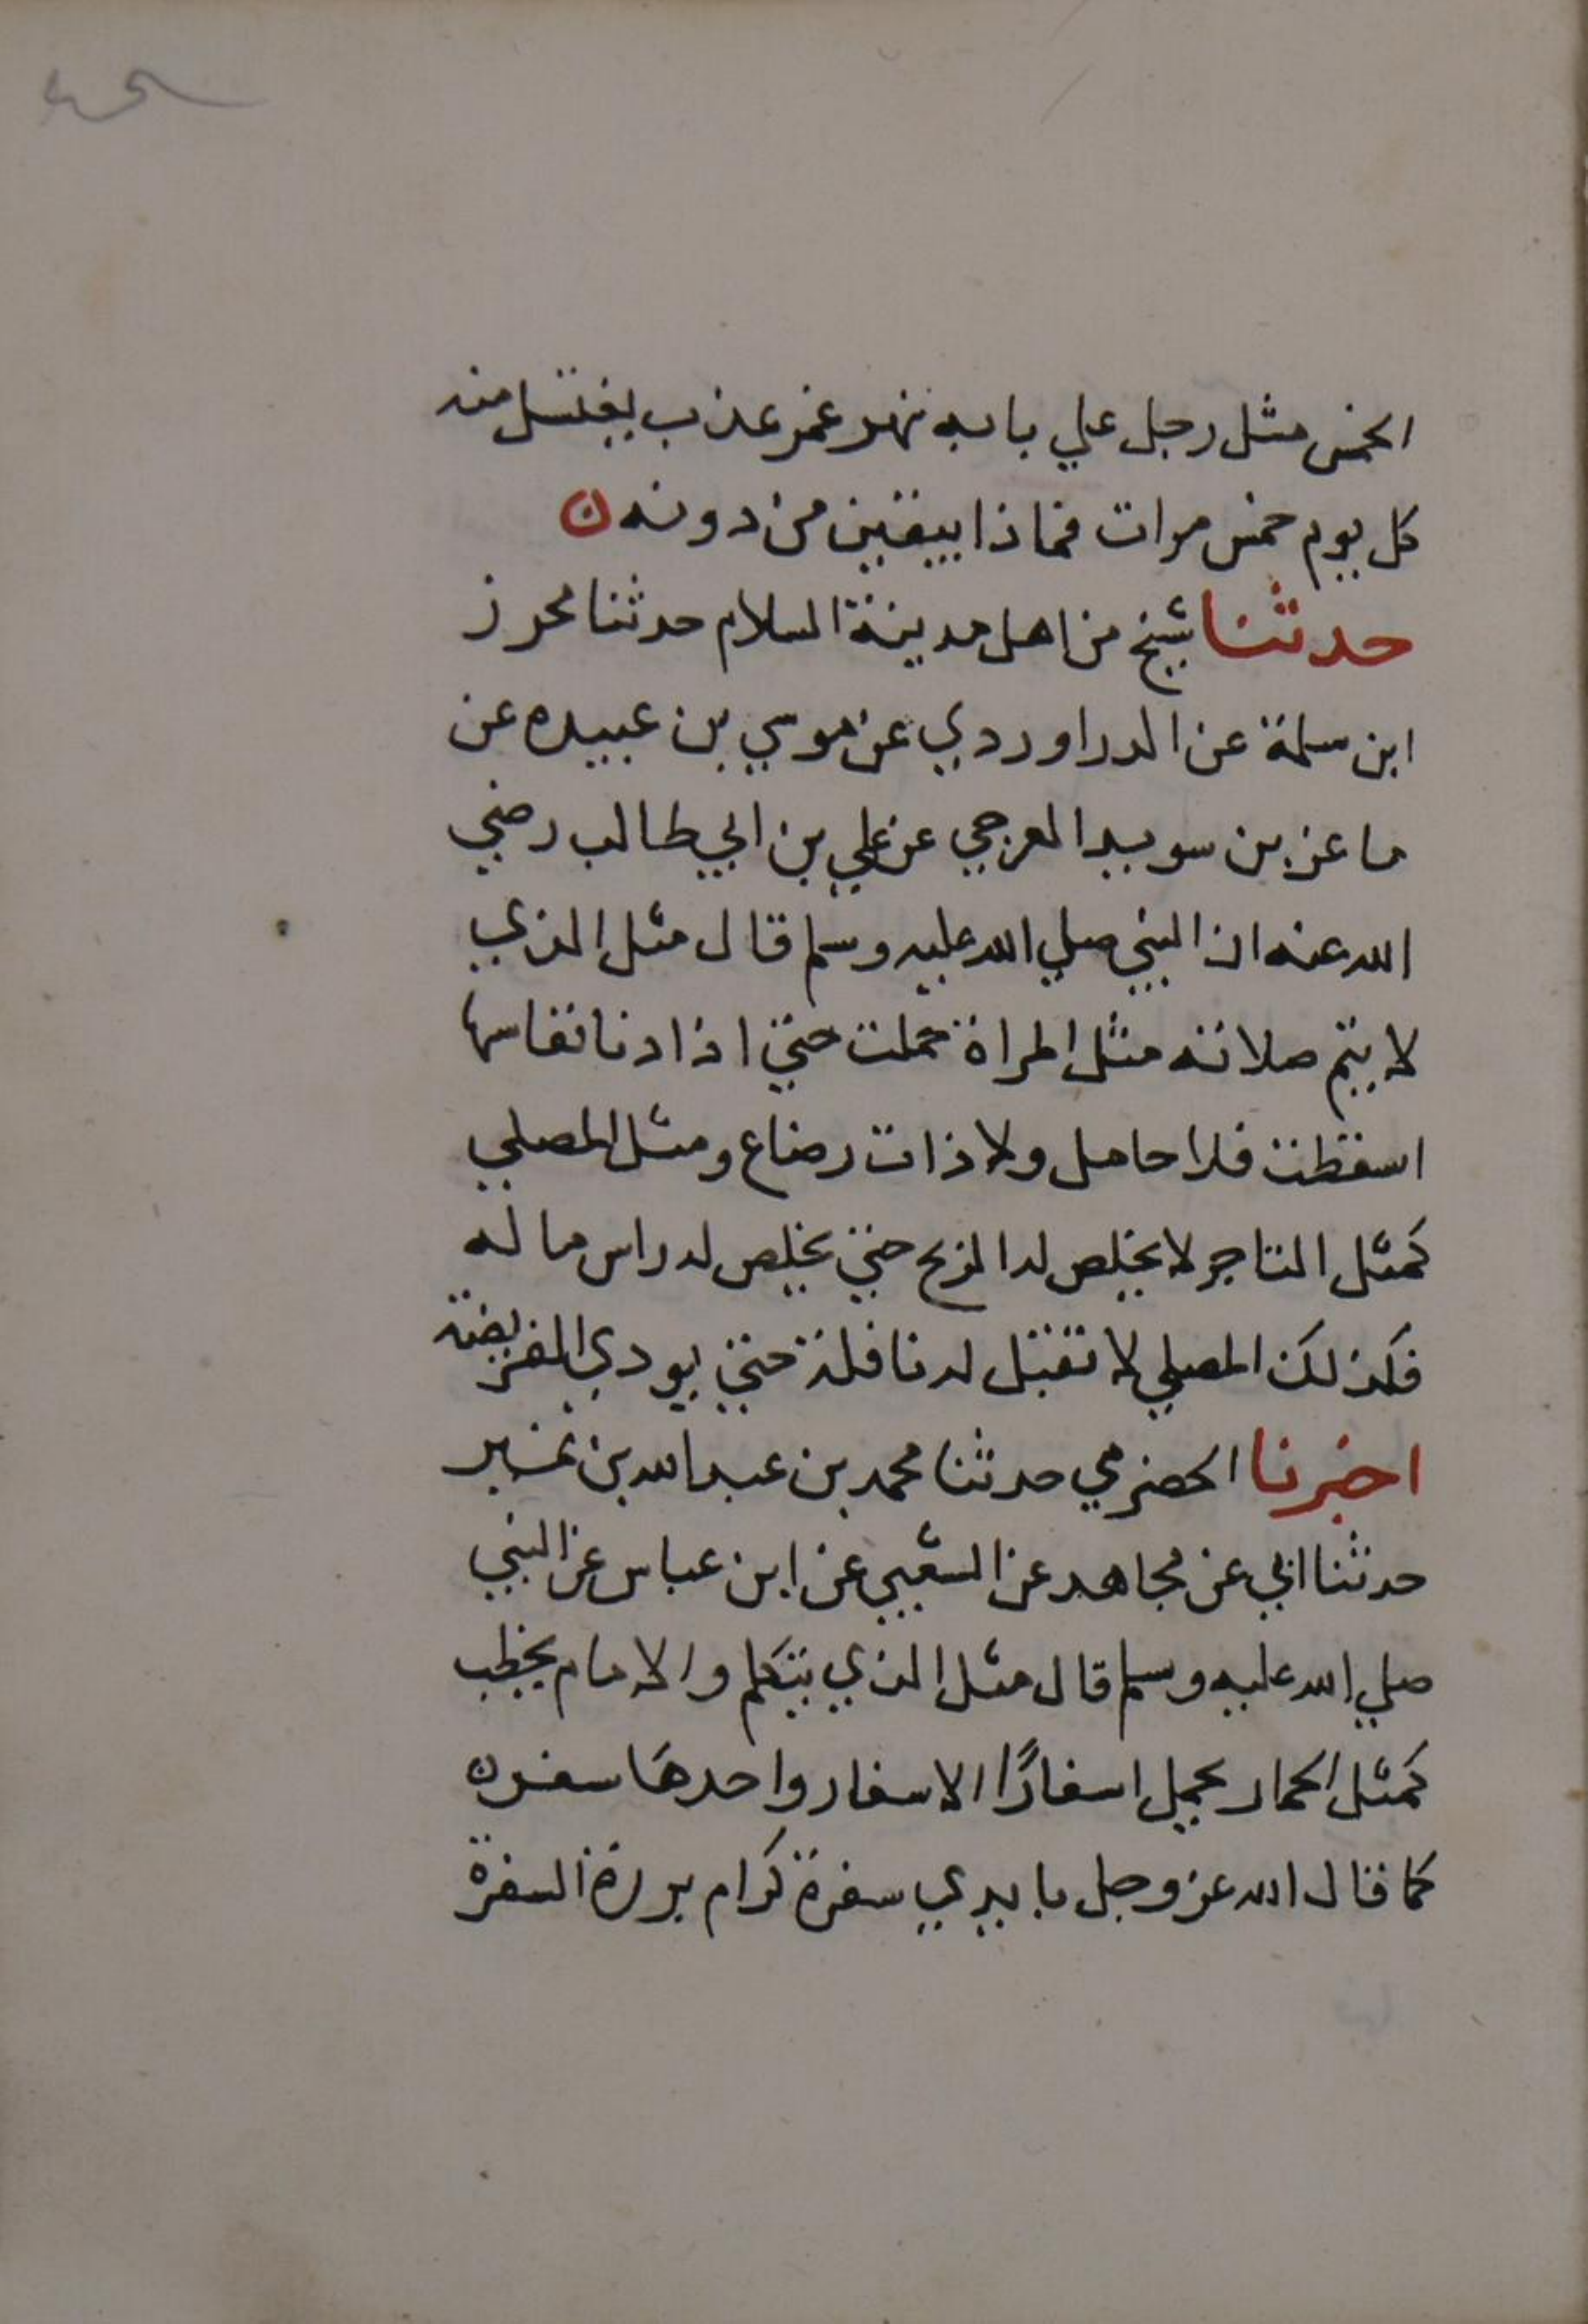 الخمس مثل رجل علي بابه نهر غمر عذب يغتسل منه
كل يوم خمس مرات فماذا يبقين من دونه ن
حدثنا شيخ من اهل مدينة السلام حدثنا محرز
ابن سلمة عن الدراوردي عن موسي بن عبيده عن
ماعز بن سويد العرجي عن علي بن ابي طالب رضي
الله عنه ان النبي صلي الله عليه وسلم قال مثل الذي
لا يتم صلاته مثل المراة حملت حتي اذا دنا نفاسها
اسقطت فلا حامل ولا ذات رضاع ومثل المصلي
كمثل التاجر لا يخلص له الربح حتي يخلص له راس ماله
فكذلك المصلي لا تقبل له نافلة حتي يودي الفريضة
اخبرنا الحضرمي حدثنا محمد بن عبد الله بن نمير
حدثنا ابي عن مجاهد عن الشعبي عن ابن عباس عن النبي
صلي الله عليه وسلم قال مثل الذي يتكلم والامام يخطب
كمثل الحمار يحمل اسفارًا الاسفار واحدها سفر ن
كما قال الله عز وجل بايدي سفرة كرام بررة السفرة